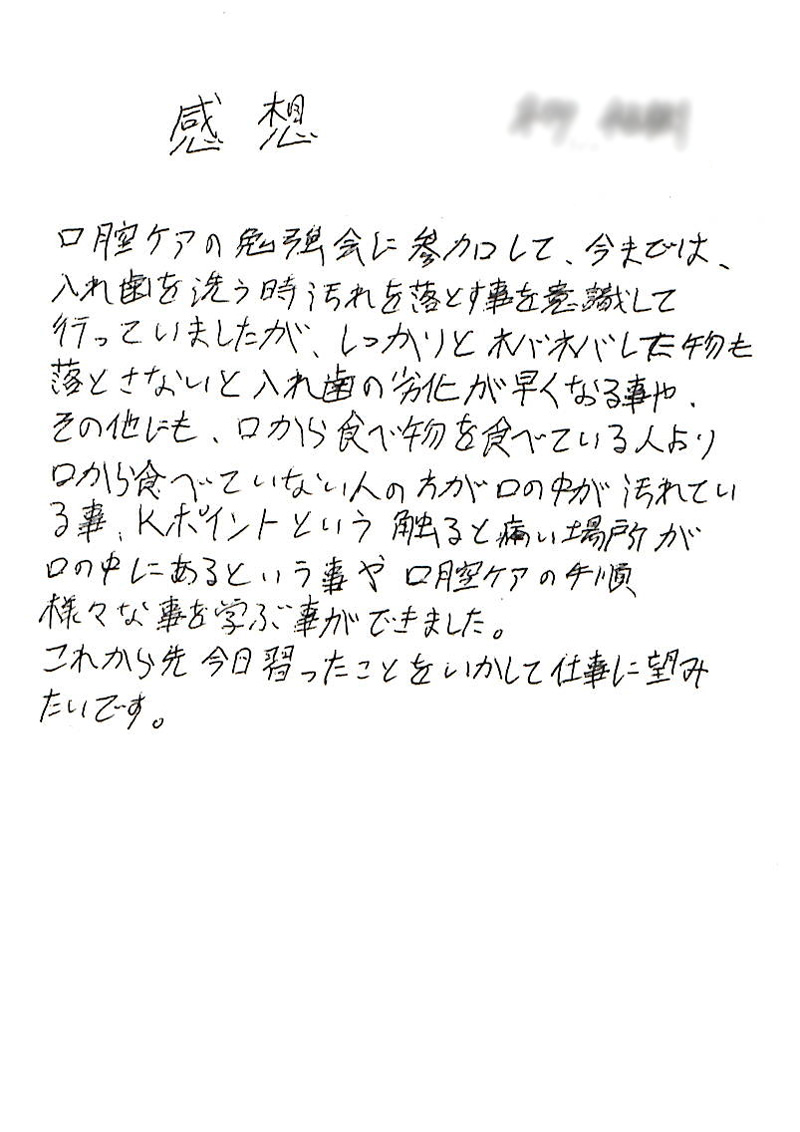 感想
口腔ケアの勉強会に参加して、今までは、
入れ歯を洗う時汚れを落とす事を意識して
行っていましたが、しっかりとネバネバした物も
落とさないと入れ歯の劣化が早くなる事や、
その他にも、口から食べ物を食べている人より
口から食べていない人の方が口の中が汚れてい
る事、Kポイントという触ると痛い場所が
口の中にあるという事や口腔ケアの手順
様々な事を学ぶ事ができました。
これから先今日習ったことをいかして仕事に望み
たいです。